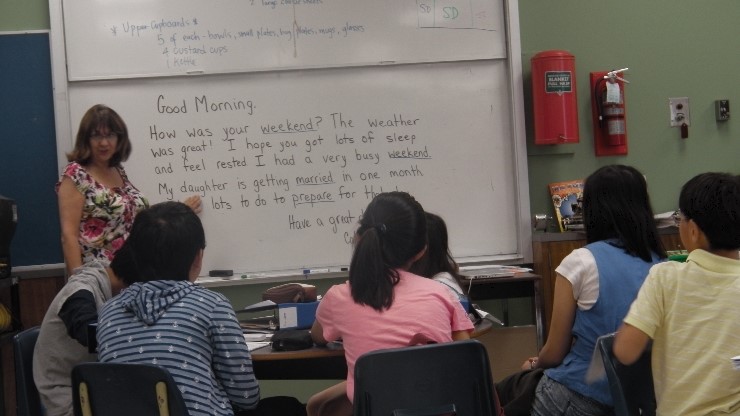 * Upper Cupboards *
5 of each - bowls, small plates, big plates, mugs, glasses
4 custard cups
1 kettle
SD
SD
Good Morning.
How was your weekend? The weather
was great! I hope you got lots of sleep
and feel rested I had a very busy weekend.
My daughter is getting married in one month
lots to do to prepare for
Have a great
BLANKET